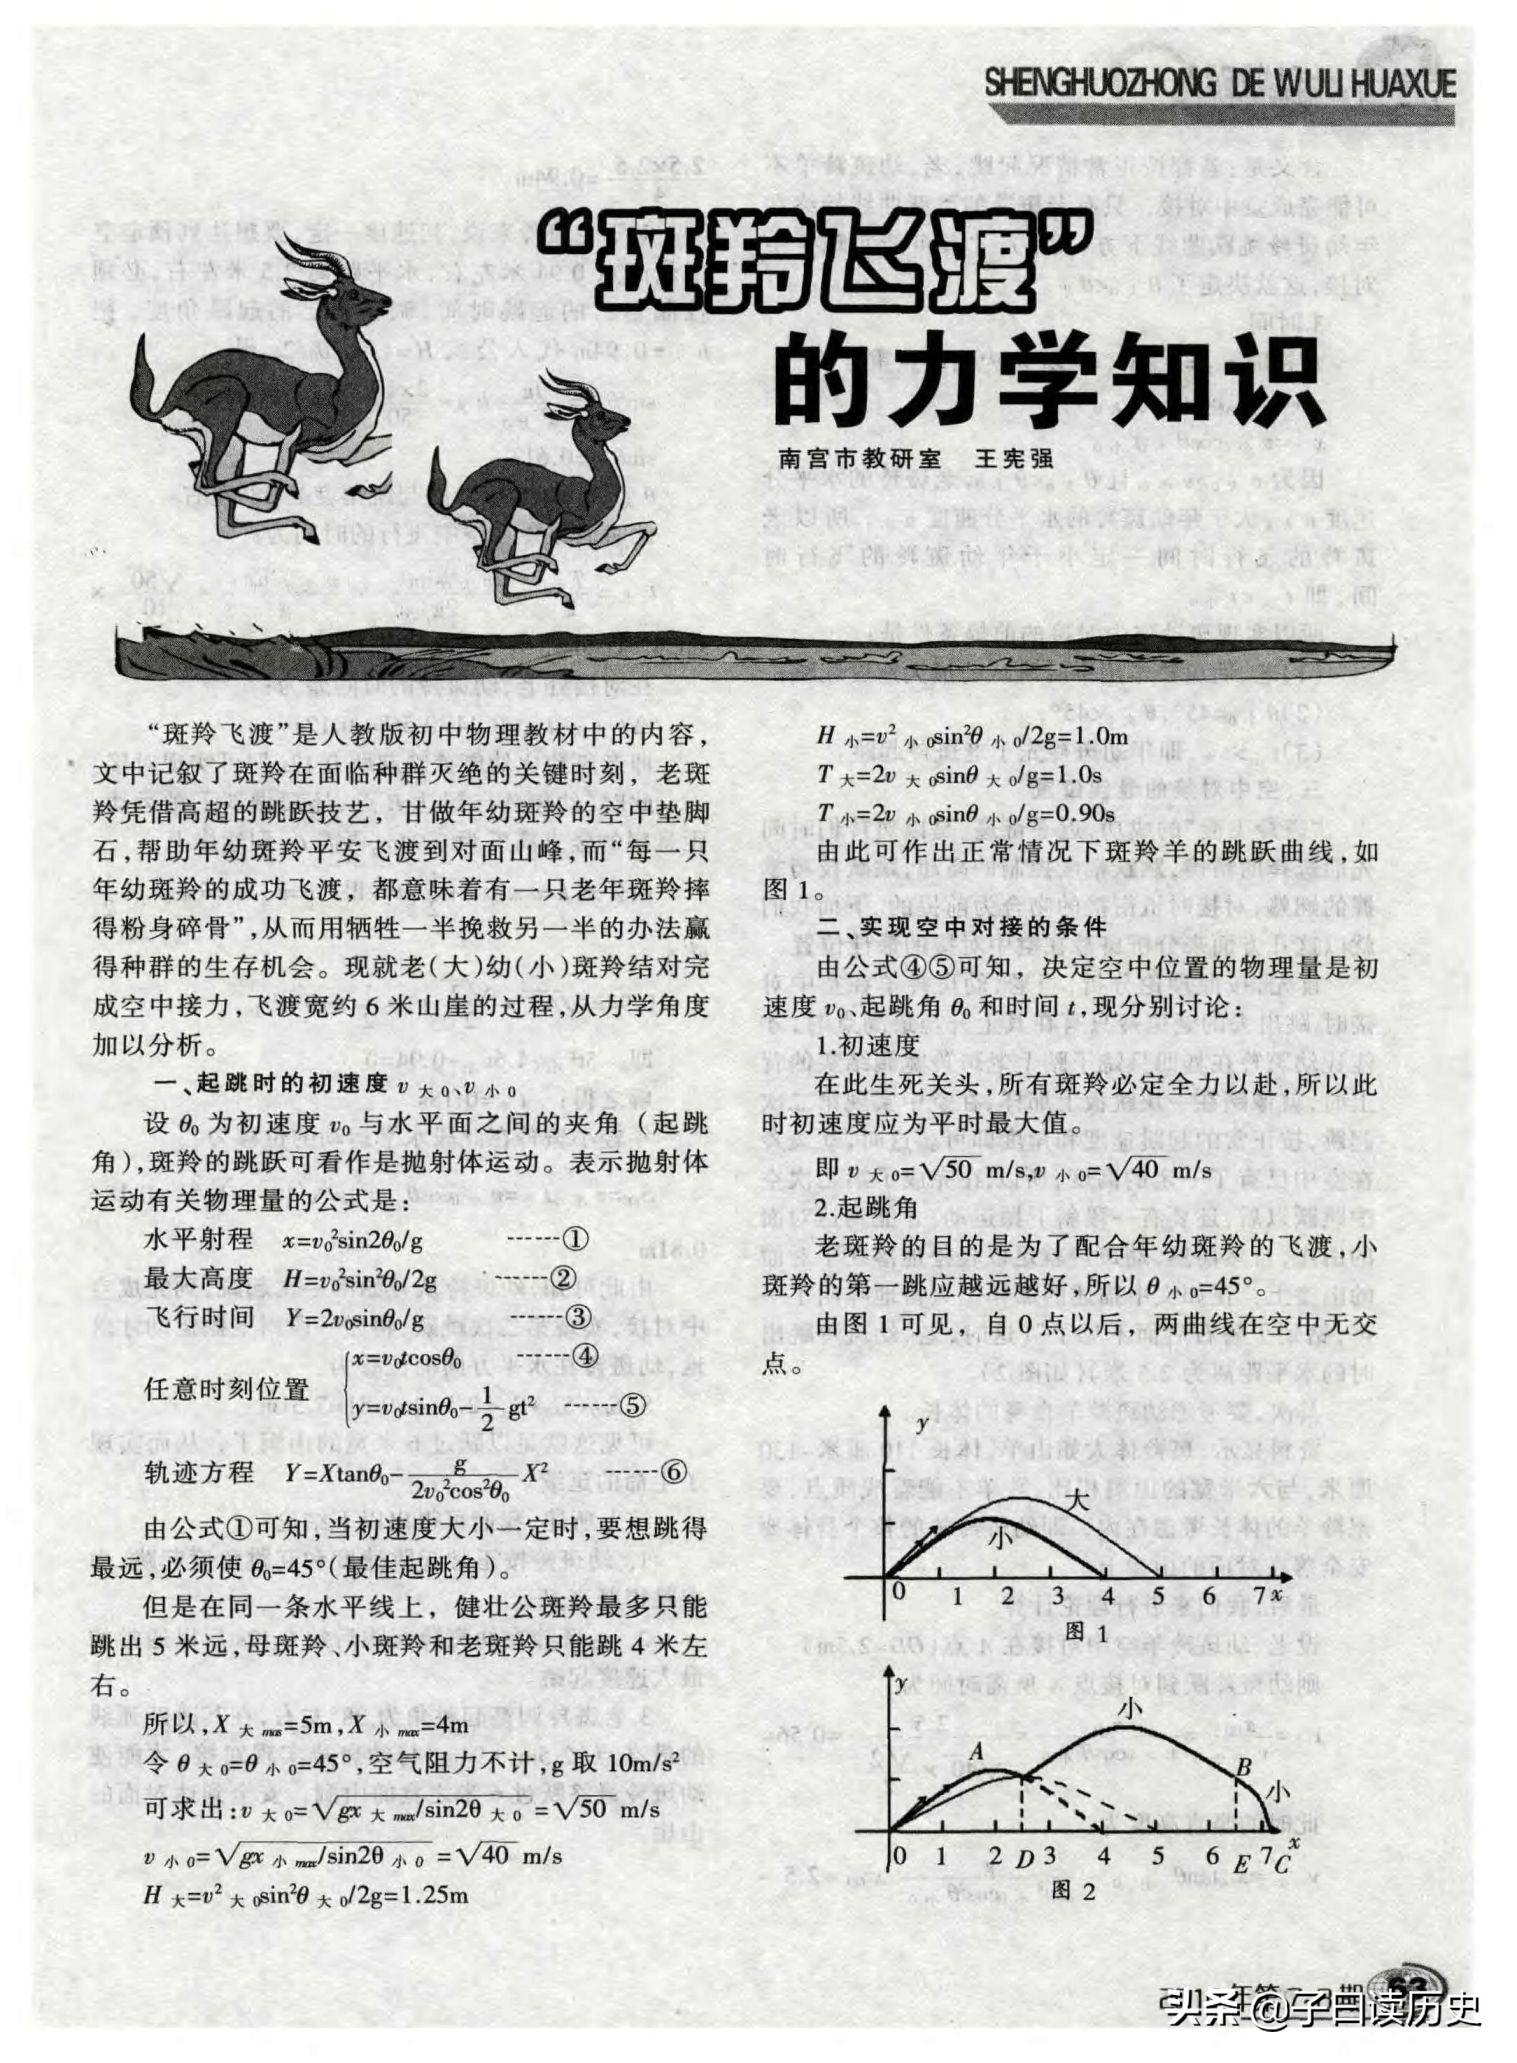 SHENGHUOZHONG DE WULI HUAXUE
“斑羚飞渡”
的力学知识
南宫市教研室 王宪强
“斑羚飞渡”是人教版初中物理教材中的内容，
文中记叙了斑羚在面临种群灭绝的关键时刻，老斑
羚凭借高超的跳跃技艺，甘做年幼斑羚的空中垫脚
石，帮助年幼斑羚平安飞渡到对面山峰，而“每一只
年幼斑羚的成功飞渡，都意味着有一只老年斑羚摔
得粉身碎骨”，从而用牺牲一半挽救另一半的办法赢
得种群的生存机会。现就老(大)幼(小)斑羚结对完
成空中接力，飞渡宽约6米山崖的过程，从力学角度
加以分析。
一、起跳时的初速度v大0、v小0
设θ0为初速度v0与水平面之间的夹角（起跳
角），斑羚的跳跃可看作是抛射体运动。表示抛射体
运动有关物理量的公式是：
水平射程 x=v0²sin2θ0/g ------①
最大高度 H=v0²sin²θ0/2g ------②
飞行时间 Y=2v0sinθ0/g ------③
任意时刻位置
x=v0tcosθ0 ------④
y=v0tsinθ0-1/2gt² ------⑤
轨迹方程 Y=Xtanθ0-g/2v0²cos²θ0 X² ------⑥
由公式①可知，当初速度大小一定时，要想跳得
最远，必须使θ0=45°(最佳起跳角)。
但是在同一条水平线上，健壮公斑羚最多只能
跳出5米远，母斑羚、小斑羚和老斑羚只能跳4米左
右。
所以，X大max=5m，X小max=4m
令θ大0=θ小0=45°，空气阻力不计，g取10m/s²
可求出：v大0=√gx大max/sin2θ大0=√50 m/s
v小0=√gx小max/sin2θ小0=√40 m/s
H大=v²大0sin²θ大0/2g=1.25m
H小=v²小0sin²θ小0/2g=1.0m
T大=2v大0sinθ大0/g=1.0s
T小=2v小0sinθ小0/g=0.90s
由此可作出正常情况下斑羚羊的跳跃曲线，如
图1。
二、实现空中对接的条件
由公式④⑤可知，决定空中位置的物理量是初
速度v0、起跳角θ0和时间t，现分别讨论：
1.初速度
在此生死关头，所有斑羚必定全力以赴，所以此
时初速度应为平时最大值。
即v大0=√50 m/s,v小0=√40 m/s
2.起跳角
老斑羚的目的是为了配合年幼斑羚的飞渡，小
斑羚的第一跳应越远越好，所以θ小0=45°。
由图1可见，自0点以后，两曲线在空中无交
点。
y
大
小
0 1 2 3 4 5 6 7 x
图1
y
小
A
B
小
0 1 2 D 3 4 5 6 E 7 C x
图2
63
头条 @子曰读历史